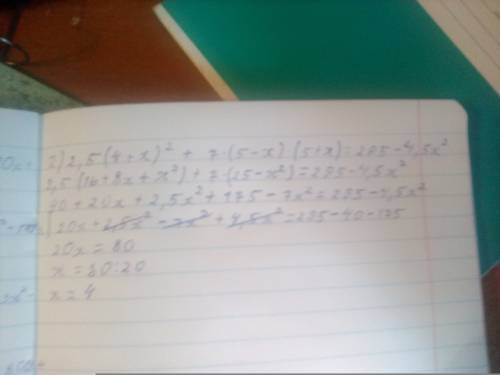 2) 2,5·(4+x)² + 7·(5-x)·(5+x)=295-4,5x²
2,5(16+8x+x²)+7·(25-x²)=295-4,5x²
40+20x+2,5x²+175-7x²=295-4,5x²
20x+2,5x²-7x²+4,5x²=295-40-175
20x=80
x=80:20
x=4